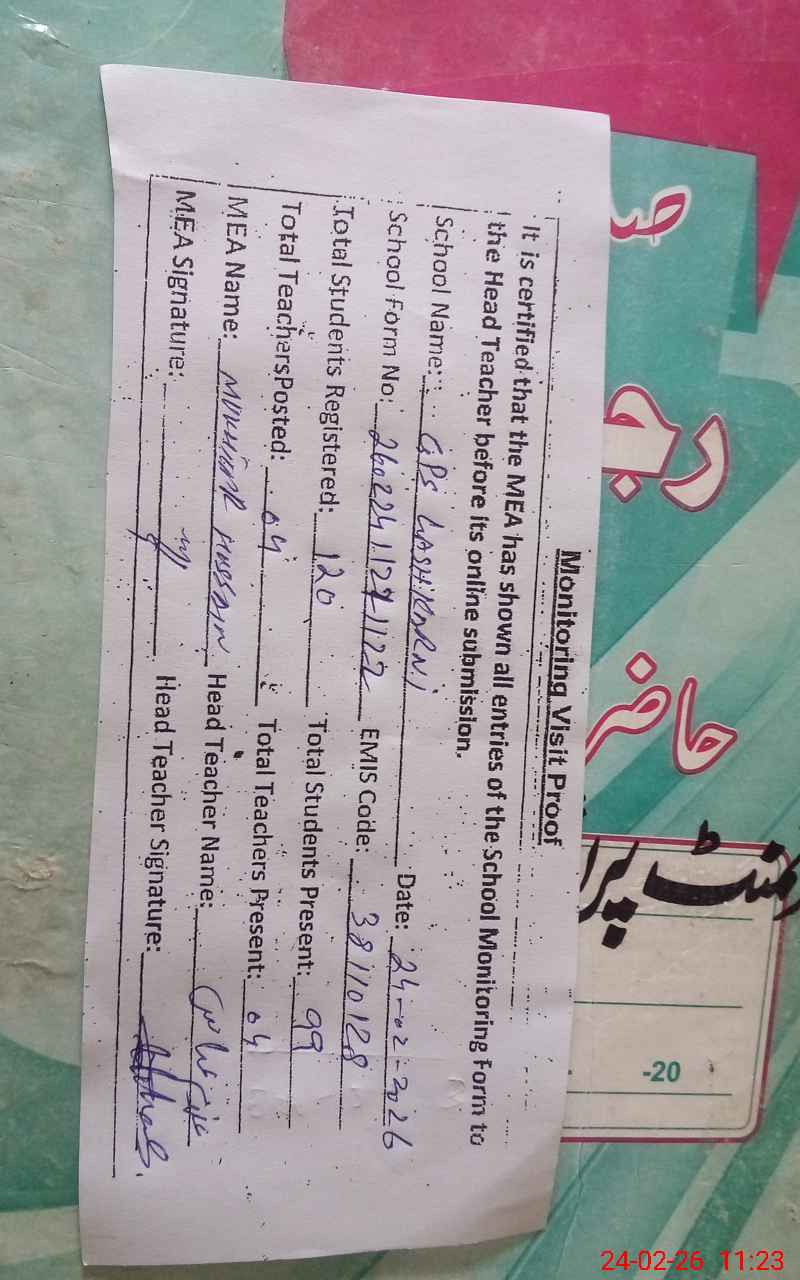 Monitoring Visit Proof
It is certified that the MEA has shown all entries of the School Monitoring Form to
the Head Teacher before its online submission.
School Name: GPS LASHKARNI Date: 24-02-2026
School Form No: EMIS Code: 38110128
Total Students Registered: 120 Total Students Present: 99
Total TeachersPosted: 04 Total Teachers Present: 04
MEA Name: MUKHTAR HUSSAIN Head Teacher Name:
MEA Signature: Head Teacher Signature:
حاضر
-20
24-02-26 11:23